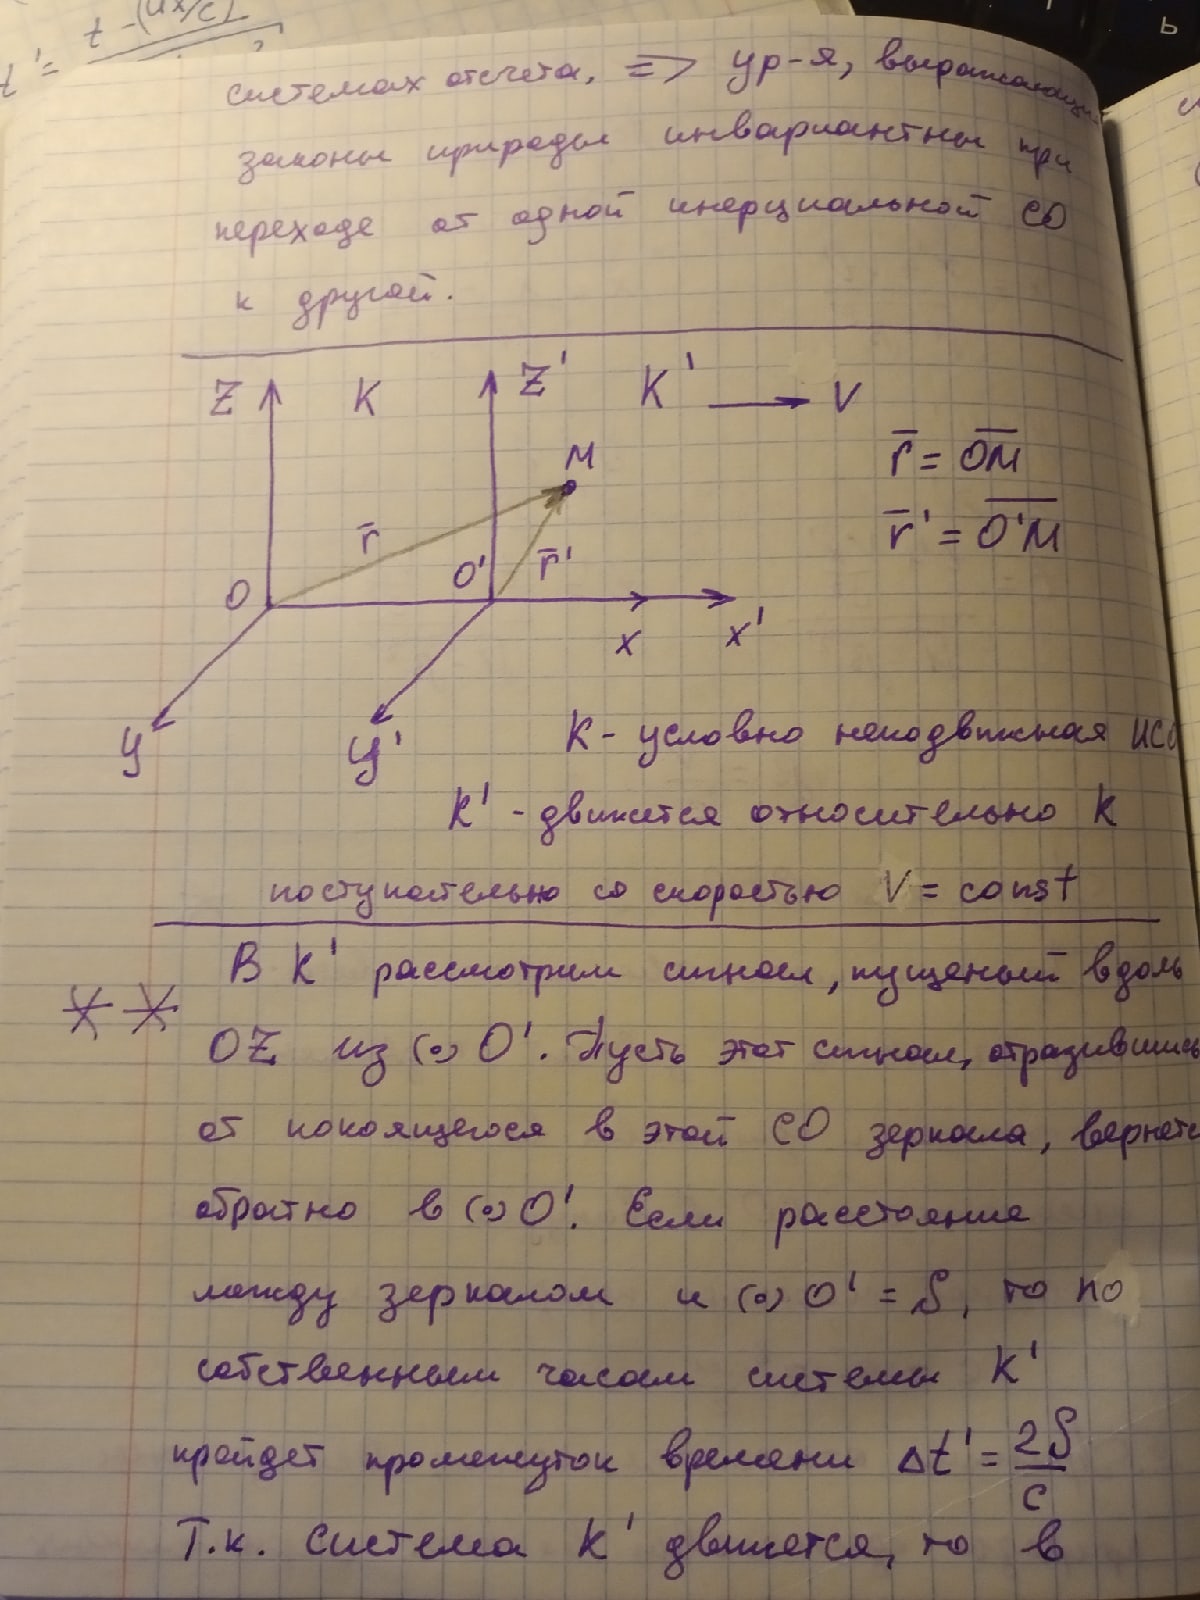 t' = t - (ux/c)
системах отсчета, => ур-я, выражающие
законы природы инвариантны при
переходе от одной инерциальной СО
к другой.
Z K Z' K' → V
M
r̅ = O̅M̅
r̅ r̅' = O̅'̅M̅
O O' r̅'
x x'
y y'
K - условно неподвижная ИСО
K' - движется относительно K
поступательно со скоростью V = const
В K' рассмотрим сигнал, пущеный вдоль
** OZ из (•) O'. Пусть этот сигнал, отразившись
от покоящегося в этой СО зеркала, вернется
обратно в (•) O'. Если расстояние
между зеркалом и (•) O' = S, то по
собственным часам системы K'
пройдет промежуток времени Δt' = 2S/c
Т.к. система K' движется, то в
ь